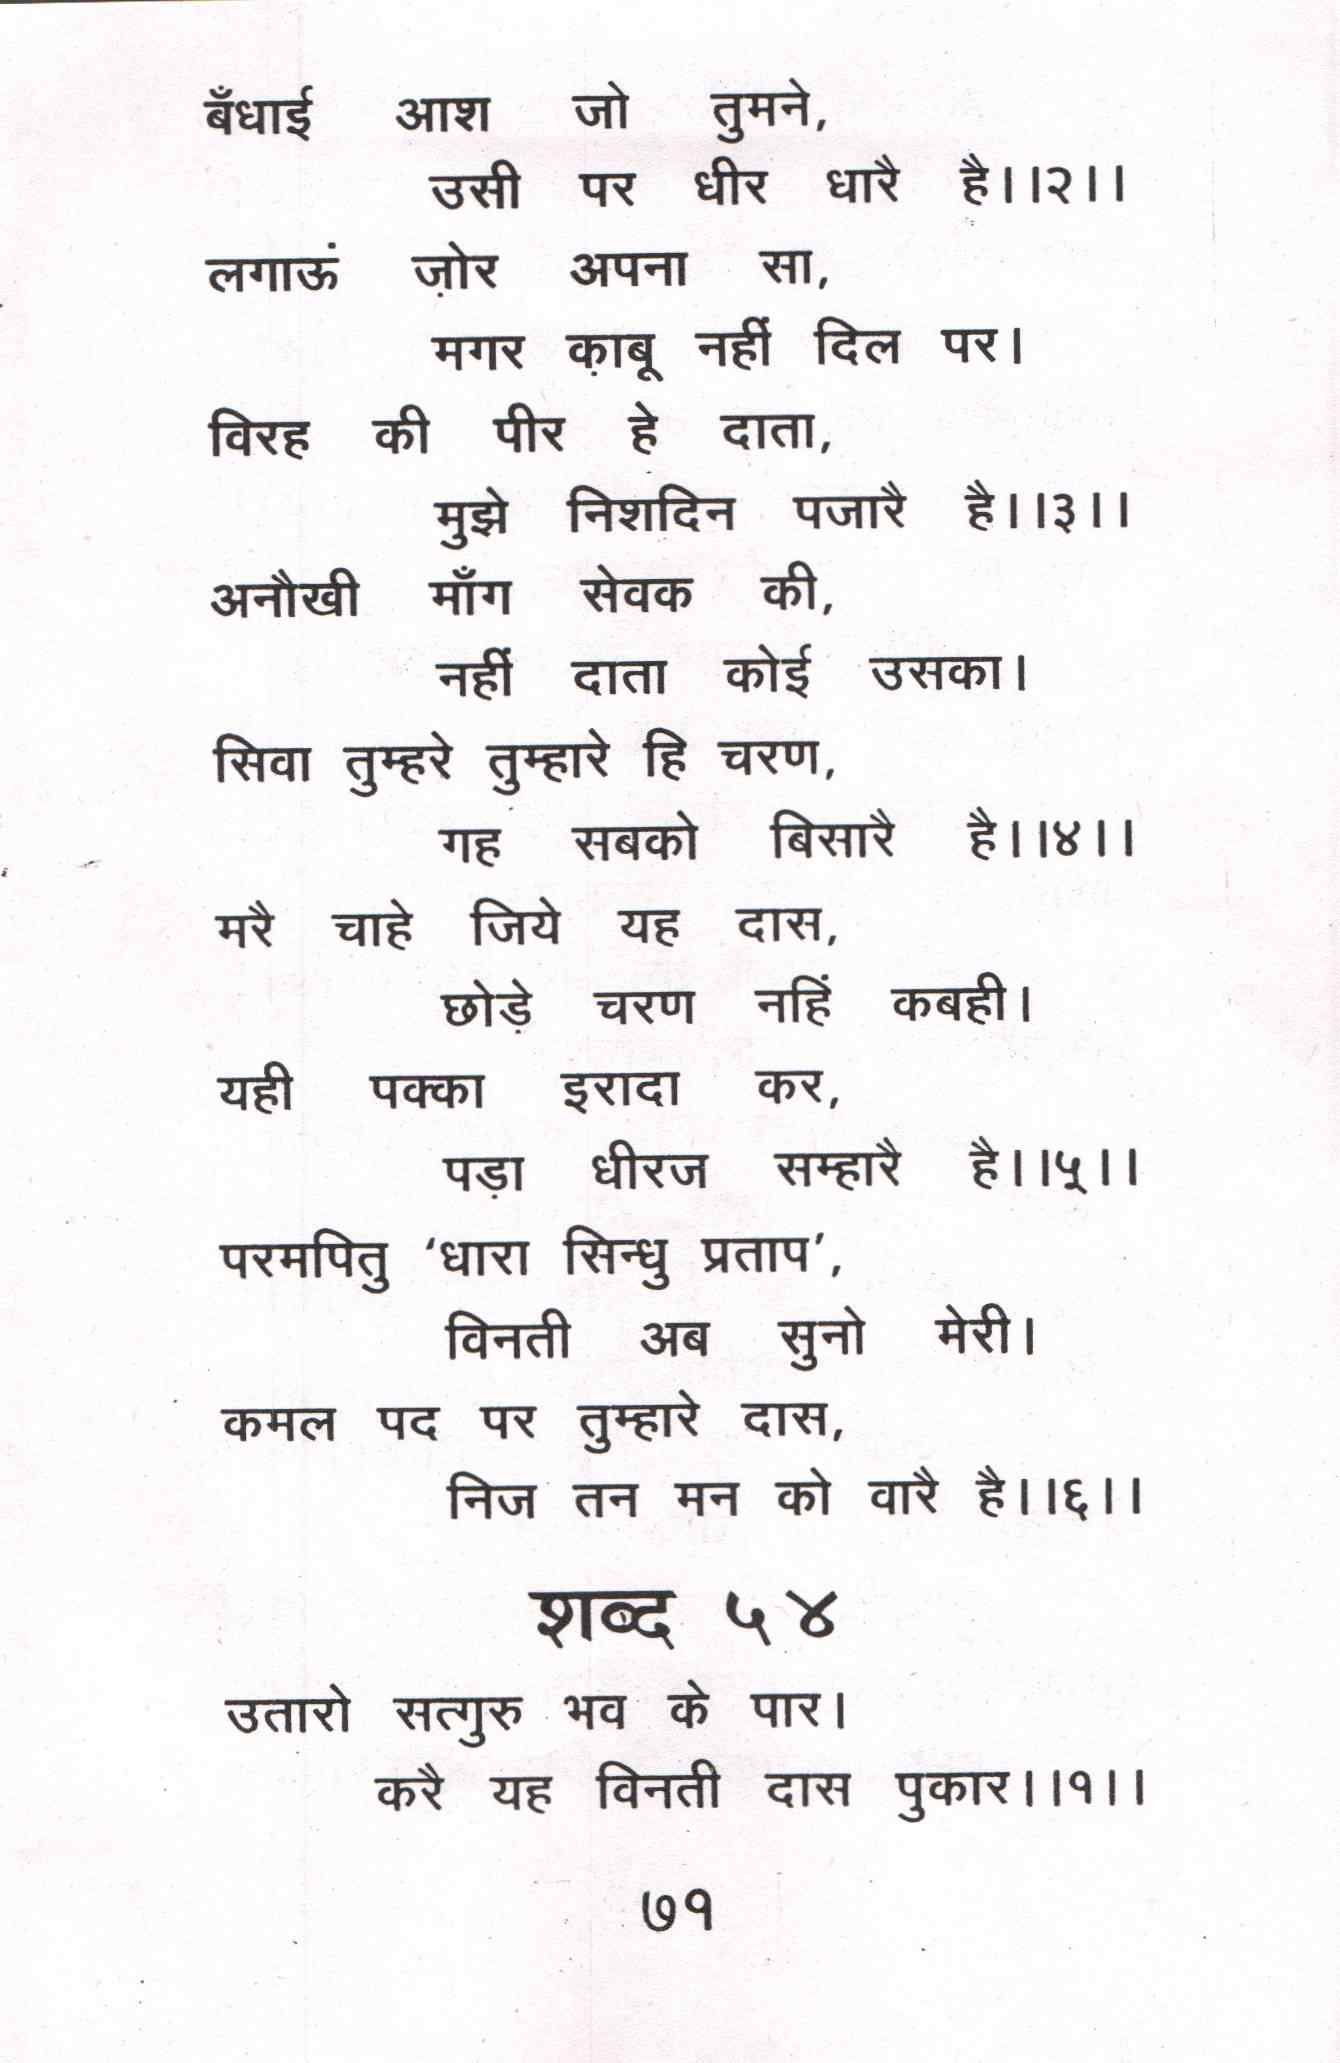 बँधाई आश जो तुमने,
उसी पर धीर धारै है।।२।।
लगाऊं ज़ोर अपना सा,
मगर क़ाबू नहीं दिल पर।
विरह की पीर हे दाता,
मुझे निशदिन पजारै है।।३।।
अनौखी माँग सेवक की,
नहीं दाता कोई उसका।
सिवा तुम्हरे तुम्हारे हि चरण,
गह सबको बिसारै है।।४।।
मरै चाहे जिये यह दास,
छोड़े चरण नहिं कबही।
यही पक्का इरादा कर,
पड़ा धीरज सम्हारै है।।५।।
परमपितु ‘धारा सिन्धु प्रताप’,
विनती अब सुनो मेरी।
कमल पद पर तुम्हारे दास,
निज तन मन को वारै है।।६।।
शब्द ५४
उतारो सत्गुरु भव के पार।
करै यह विनती दास पुकार।।१।।
७१